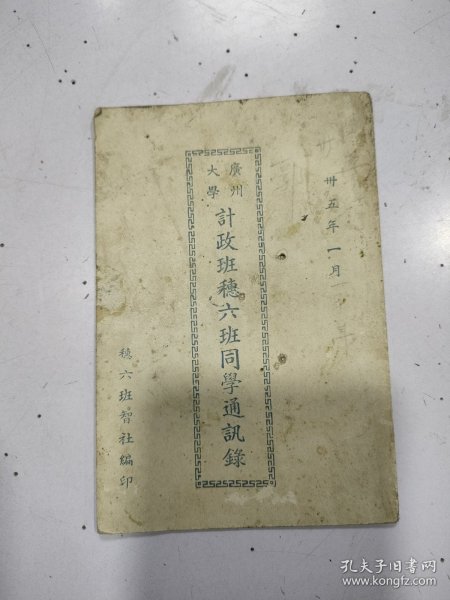 卅五年一月
廣州
大學
計政班穗六班同學通訊錄
穗六班智社編印
孔夫子旧书网
www.kongfz.com